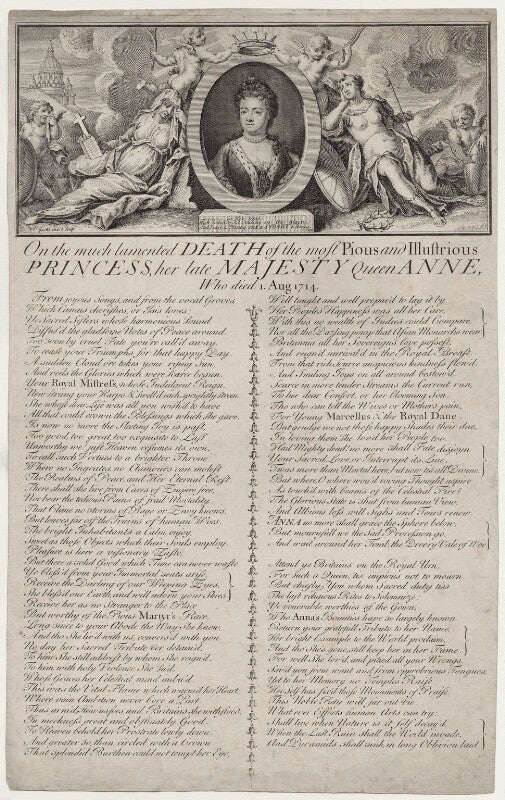 On the much lamented DEATH of the most Pious and Illustrious
PRINCESS, her late MAJESTY Queen ANNE,
Who died 1. Aug. 1714.
From joyous Songs, and from the vocal Groves
Which Camus cherishes, or Isis loves,
Ye Sacred Sisters whose harmonious Sound
Diffus'd the gladsome Notes of Peace around.
Too soon by cruel Fate you're call'd away,
To cease your Triumphs, for that happy Day
A sudden Cloud o'er takes your rising Sun,
And veils the Glories which were scarce begun.
Your Royal Mistress, whose Indulgent Reign
New strung your Harps & swell'd each sprightly strain
She whose dear Life was all you wish'd to have
All that could crown the Blessings which she gave,
Is now no more the fleeting Joy is past,
Too good, too great too exquisite to Last
Unworthy we: just Heaven resumes its own,
To call such Vertues to a brighter Throne
Where no Ingrates, no Clamours can molest
The Realms of Peace, and Her Eternal Rest
There shall she live from Cares of Empire free,
Nor bear the tedious Pains of frail Mortality
That Clime no storms of Rage or Envy knows,
But leaves far off the Train of human Woes.
The bright Inhabitants a Calm enjoy
Sweet as those Objects which their Souls employ.
Pleasure is here a visionary Taste
But there a solid Good which Time can never waste
Ye Bless'd from your Immortal seats arise
Receive the Darling of our Weeping Eyes
She bless'd our Earth, and well adorn your Skies
Receive her as no Stranger to the Place
But worthy of the Pious Martyr's Race.
Long since to your Abode the Way she knew,
And tho She liv'd with us, convers'd with you.
No day her Sacred Tribute e'er detain'd,
To him She still addrest by whom She reign'd.
To him with holy Violence She held,
Whose Graces her Celestial mind imbu'd
This was the Vital Flame which warm'd her Heart
Where vain Ambition never bore a Part.
Thus arm'd, their utmost and Batteries She withstood,
In meekness great and obstinately Good.
To Heaven beheld her Prostrate lowly down
And greater so than circled with a Crown
That splendid Burthen could not tempt her Eye,
Well taught and well prepar'd to lay it by.
Her Peoples Happiness was all her Care,
With this no wealth of Indies could Compare,
Nor all the Dazling pomp that Asian Monarchs wear.
Britannia all her Sovereign's love possest,
And reign'd unrival'd in the Royal Breast.
From that rich Store unguenous kindness flow'd
And Smiling Joys on all around bestow'd
Scarce in more tender Streams the Current run
To her dear Consort, or her blooming Son
Tho who can tell the Wives or Mothers pain,
For Young Marcellus & the Royal Dane
But grudge we not those happy Shades their due,
In loving them She lov'd her People too.
Had Mighty death no more shall Fate disjoin
Your Sacred Loves, or Interrupt its Line
Twas more than Mortal here, but now tis all Divine.
But where, O where would roving Thought aspire
As touch'd with beams of the Celestial Fire?
The Glorious State is shut from human View,
And Albions loss will Sighs and Tears renew
ANNA no more shall grace the Sphere below,
But mournfull we the Sad Procession go,
And wait around her Tomb the Dreery Vale of Woe
Attend ye Britains on the Royal Urn,
For such a Queen, tis impious not to mourn
But chiefly You whom Sacred duty ties
The last religious Rites to Solemnize.
Ye venerable worthies of the Gown,
Who Anna's Bounties have so largely known
Secure your gratefull Tribute to her Name,
Her bright Example to the World proclaim,
And tho She's gone, still keep her in her Fame
For well She lov'd, and pitied all your Wrongs,
Sav'd you from want and from opprobrious Tongues.
Yet to her Memory no Temples Raise
Herself has fix'd those Monuments of Praise.
This Noble Piety will far out vie
What ever Efforts human Arts can try.
Shall live when Nature is it self decay'd
When the Last Ruin shall the World invade
And Pyramids shall sink in long Oblivion laid